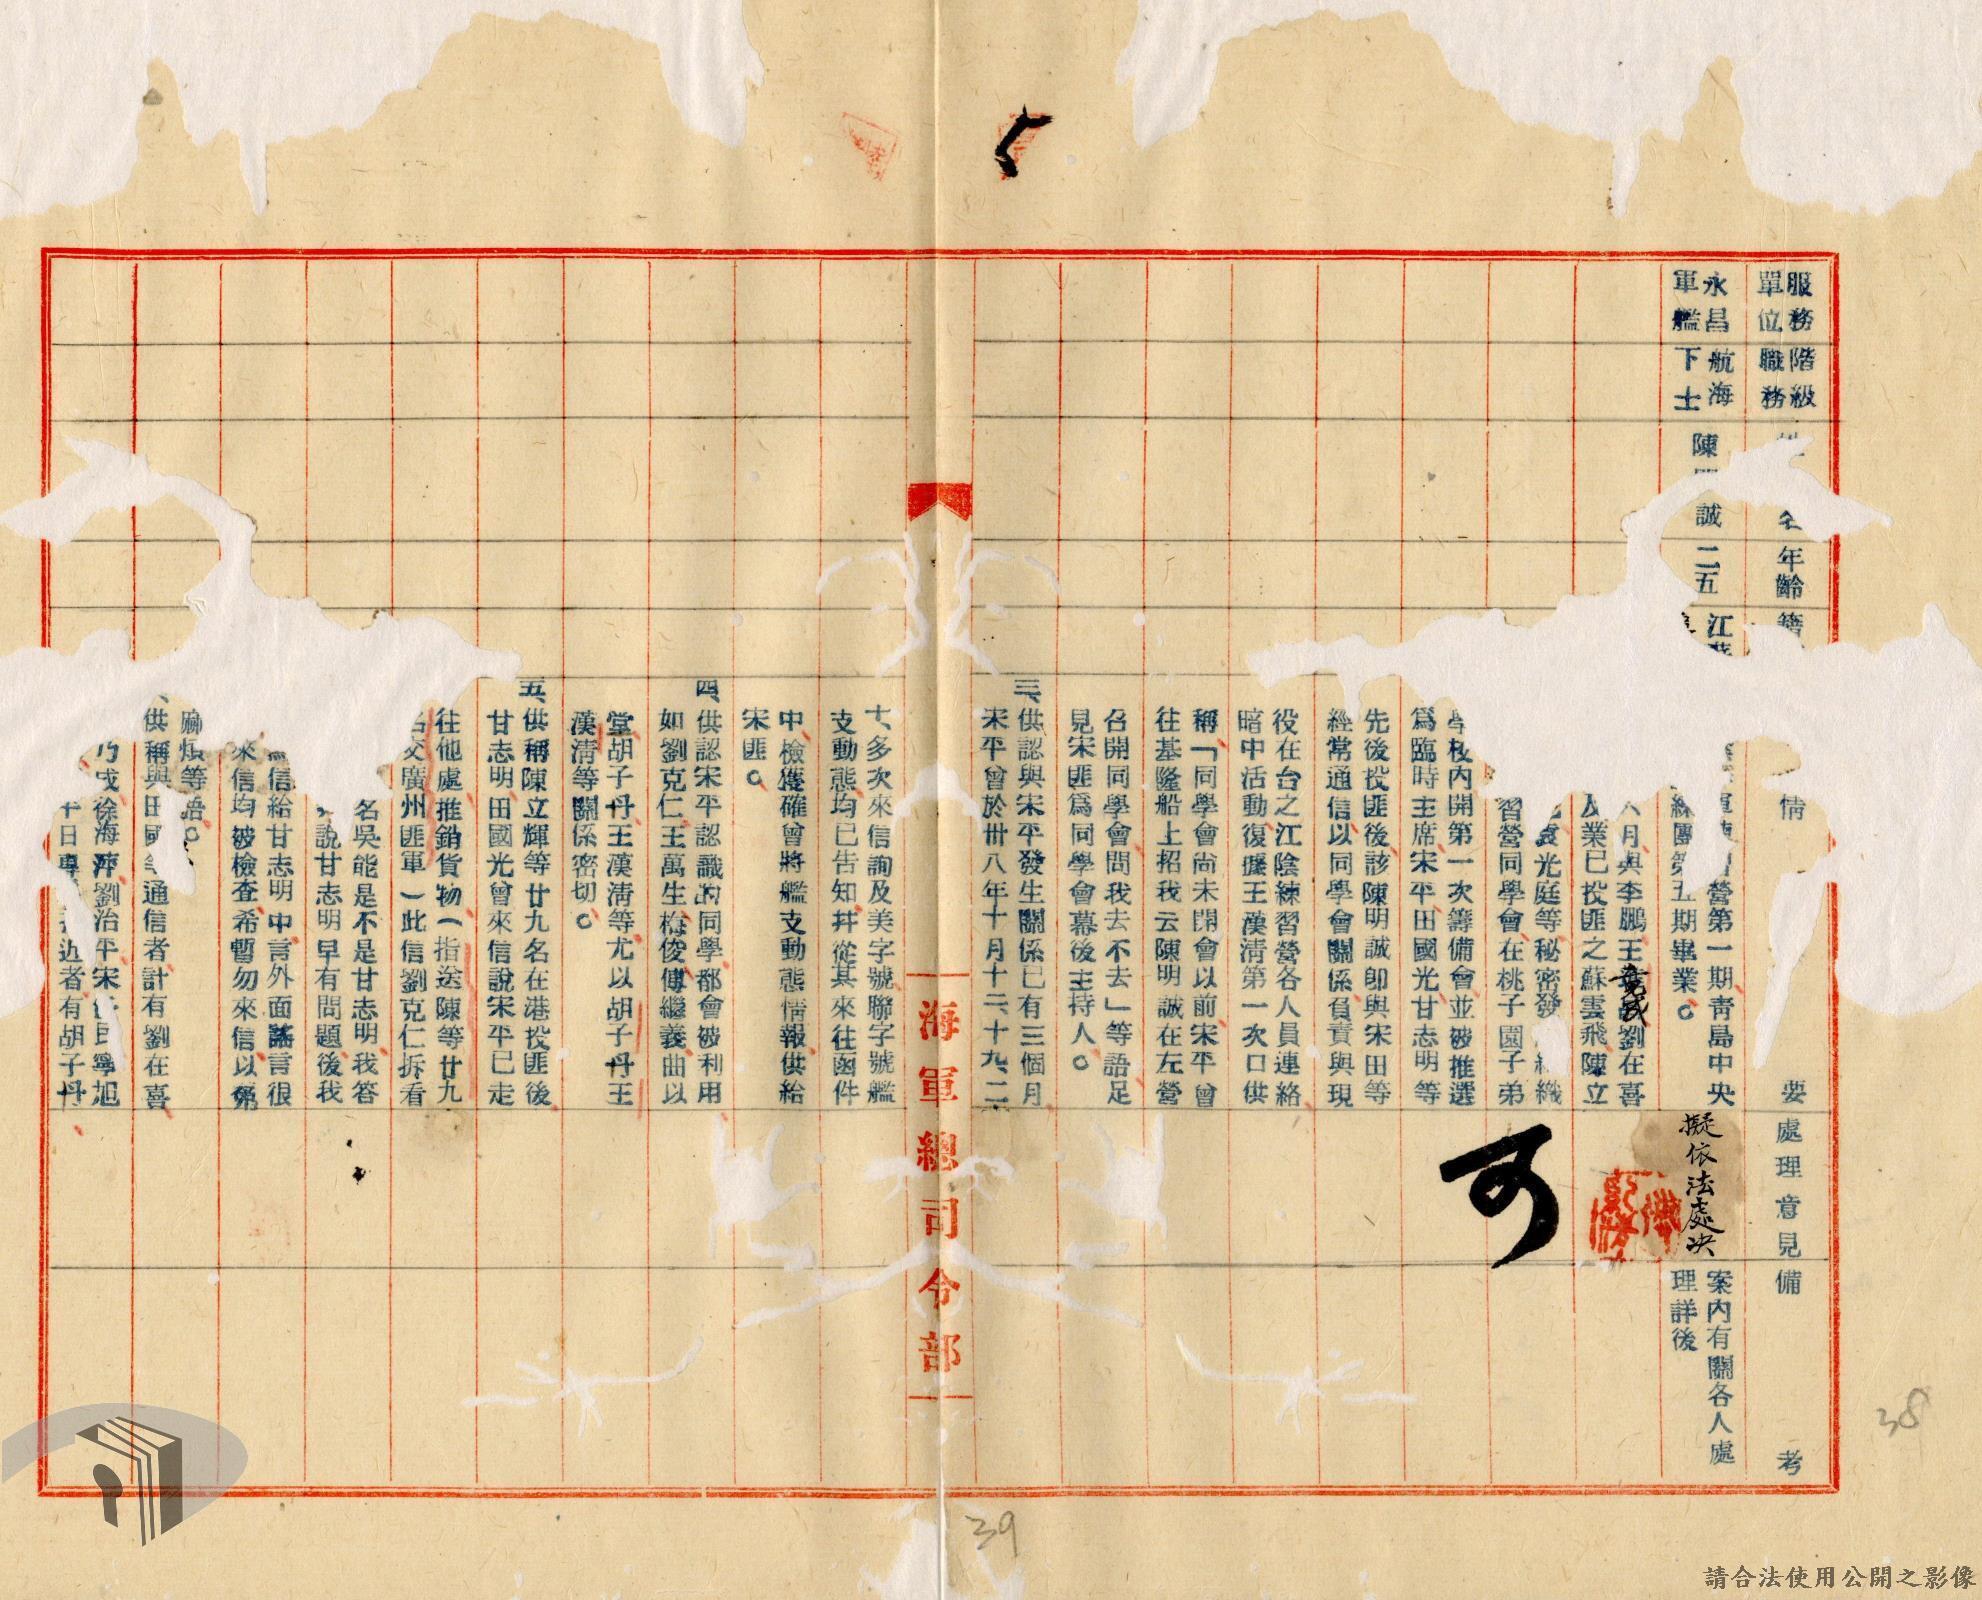 服務單位
階級職務
名
年齡
籍
情
要
處理意見
備
考
永昌軍艦
航海下士
陳
誠
二五
江
營第一期靑島中央
練團第五期畢業。
月與李鵬王
劉在喜
業已投匪之蘇雲飛陳立
光庭等秘密發
織
習營同學會在桃子園子弟
學校內開第一次籌備會並被推選
爲臨時主席宋平田國光甘志明等
先後投匪後該陳明誠卽與宋田等
經常通信以同學會關係負責與現
役在台之江陰練習營各人員連絡
暗中活動復據王漢清第一次口供
稱「同學會尚未開會以前宋平曾
往基隆船上招我云陳明誠在左營
召開同學會問我去不去」等語足
見宋匪爲同學會幕後主持人。
三、供認與宋平發生關係已有三個月
宋平曾於卅八年十月十二、十九、二
十、多次來信詢及美字號聯字號艦
支動態均已告知幷從其來往函件
中檢獲確曾將艦支動態情報供給
宋匪。
四、供認宋平認識的同學都會被利用
如劉克仁王萬生梅俊傅繼義曲以
堂胡子丹王漢清等尤以胡子丹王
漢清等關係密切。
五、供稱陳立輝等廿九名在港投匪後
甘志明田國光曾來信說宋平已走
往他處推銷貨物(指送陳等廿九
名交廣州匪軍)此信劉克仁拆看
名吳能是不是甘志明我答
說甘志明早有問題後我
信給甘志明中言外面謠言很
來信均被檢查希暫勿來信以免
麻煩等語。
供稱與田國
通信者計有劉在喜
徐海萍劉治平宋
民寧旭
近者有胡子丹
擬依法處決
可
案內有關各人處
理詳後
海軍總司令部
38
39
請合法使用公開之影像